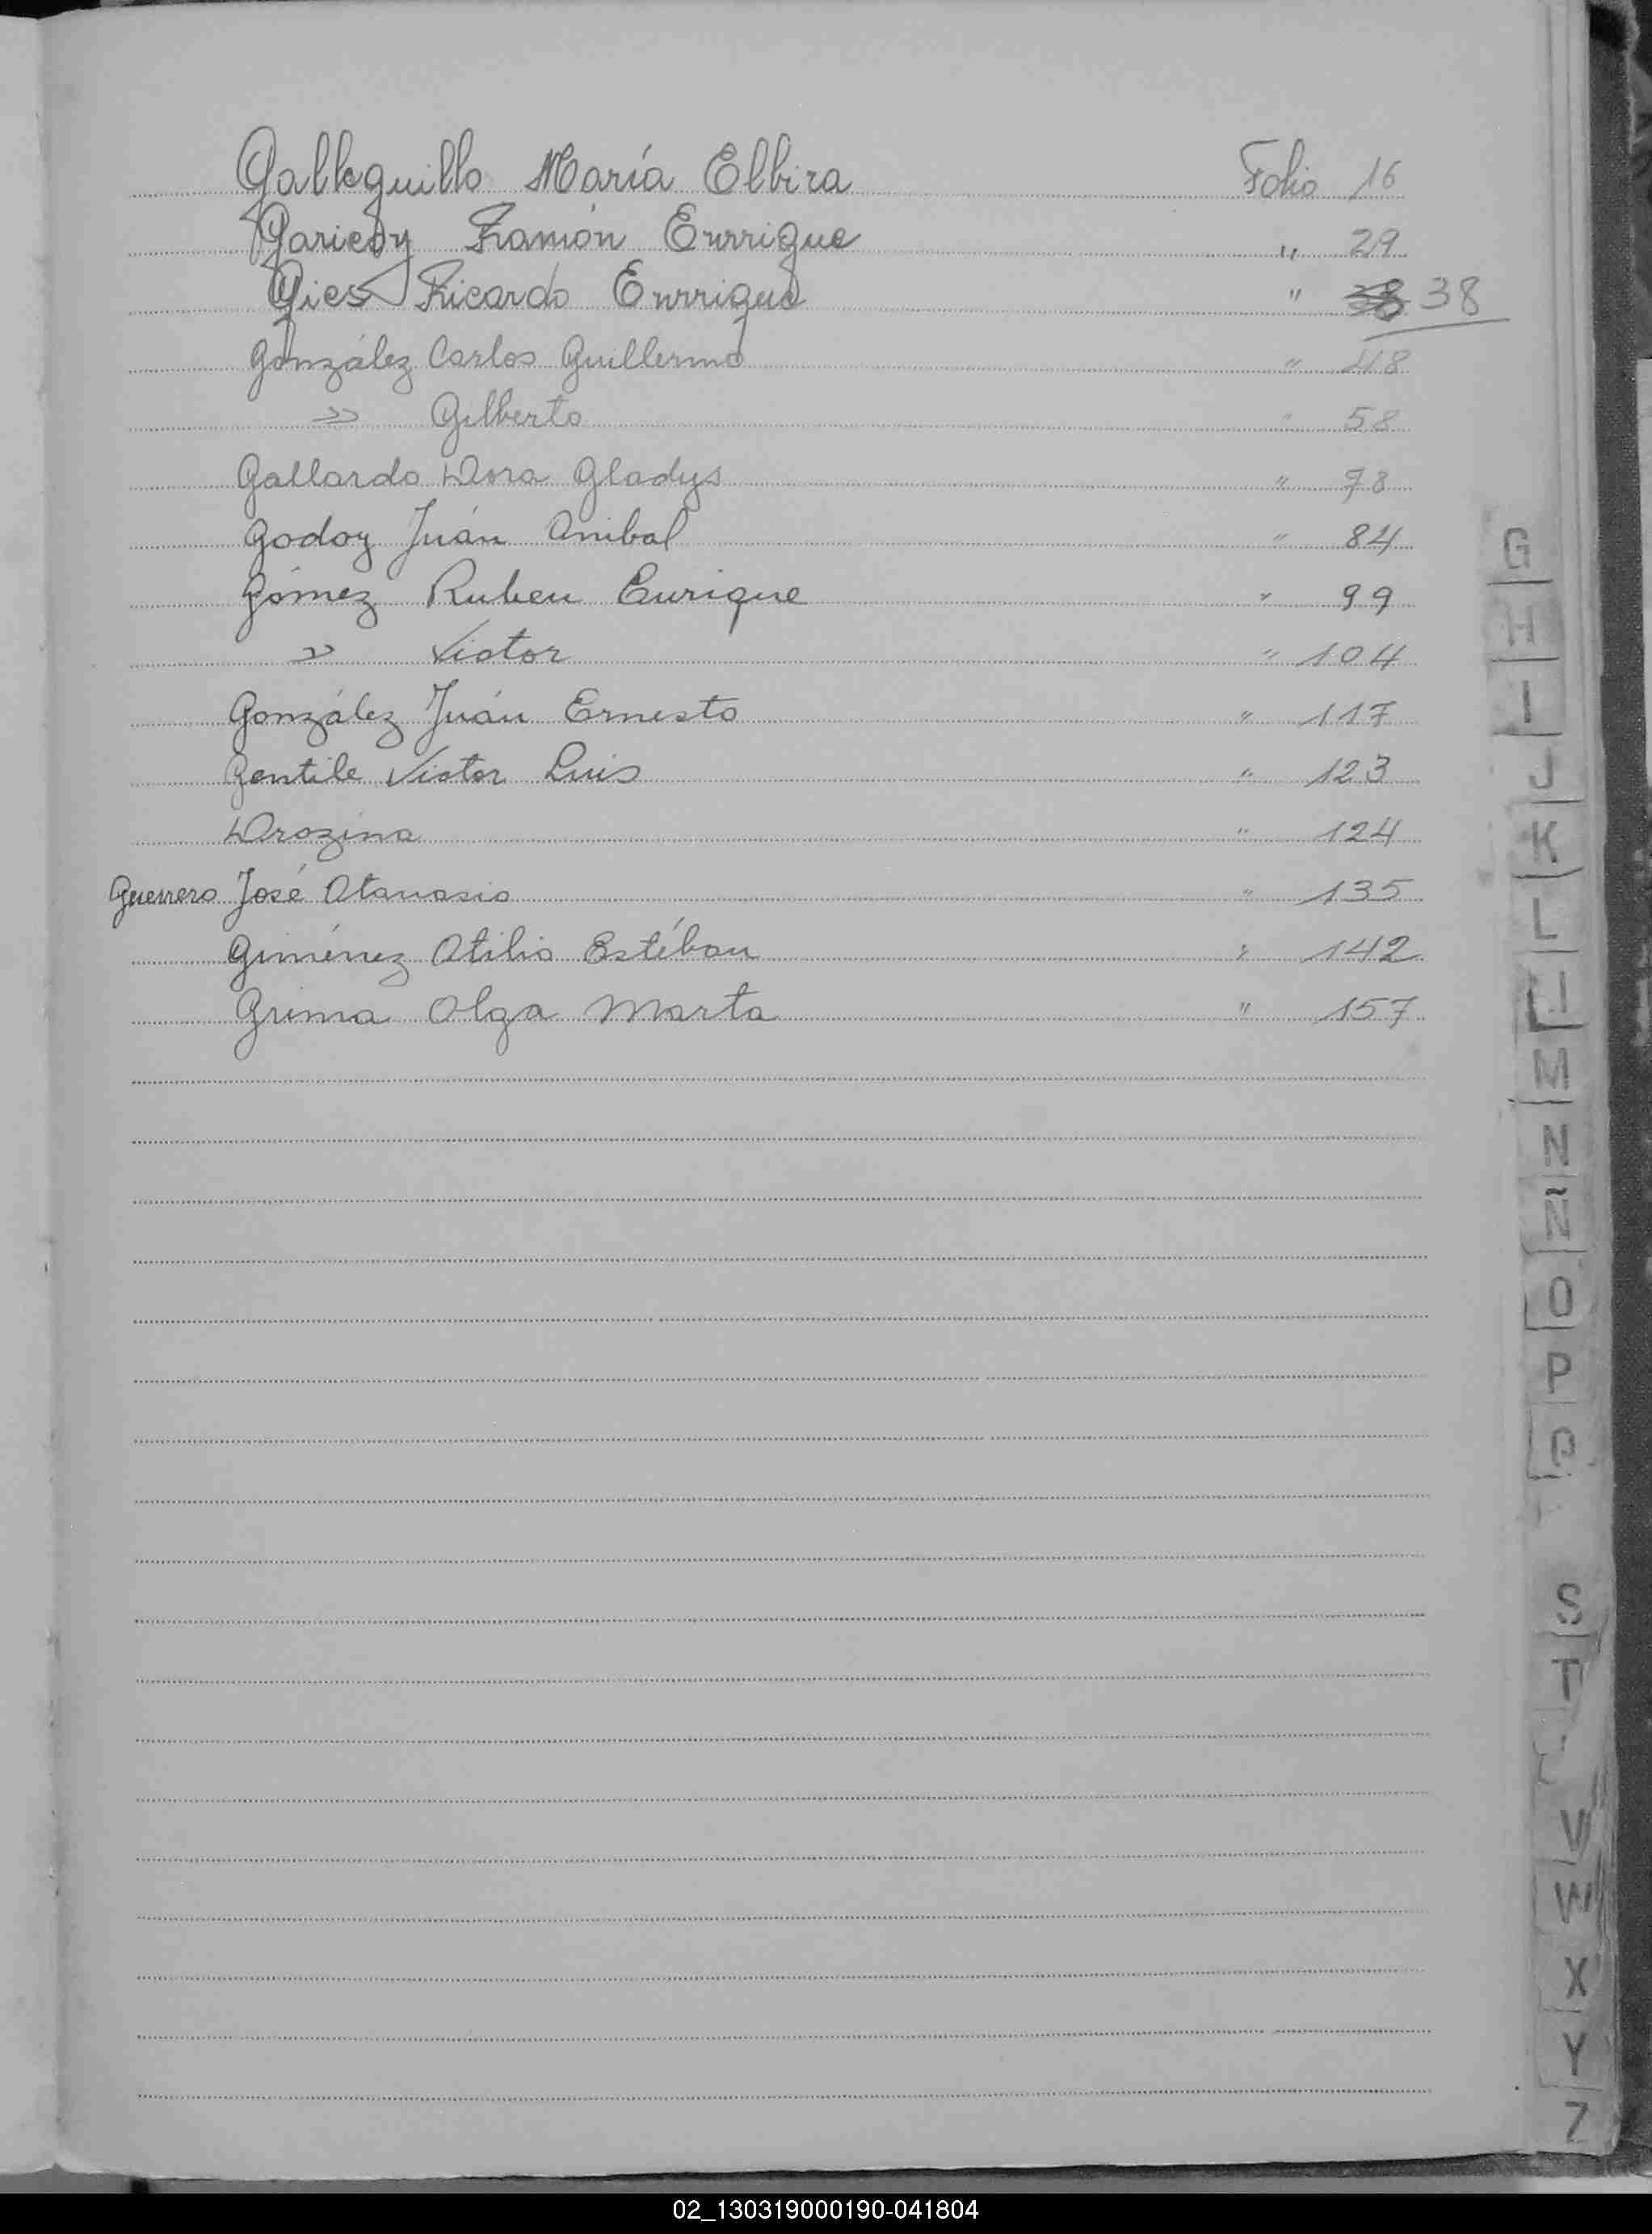 Galleguillo María Elbira Folio 16
Gariedy Ramón Enrrique " 29
Gies Ricardo Enrrique " 38 38
González Carlos Guillermo " 48
" Gilberto " 58
Gallardo Dora Gladys " 78
Godoy Juán Anibal " 84
Gómez Ruben Enrique " 99
" Victor " 104
González Juán Ernesto " 117
Gentile Victor Luis " 123
Drozina " 124
Guerrero José Atanasio " 135
Giménez Atilio Estéban " 142
Grima Olga Marta " 157
G
H
I
J
K
L
LL
M
N
Ñ
O
P
Q
S
T
V
W
X
Y
Z
02_130319000190-041804